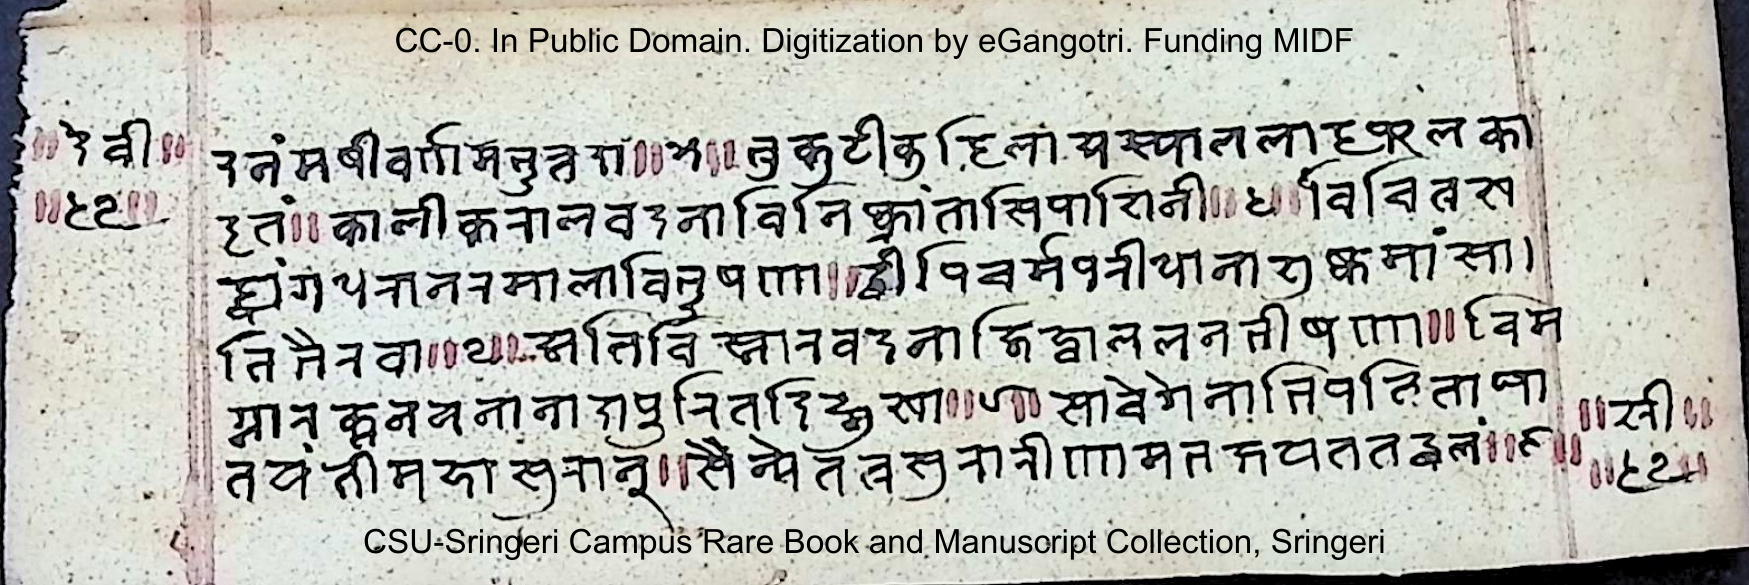 CC-0. In Public Domain. Digitization by eGangotri. Funding MIDF
॥देवी॥
दनंमषीवर्णमभुत्तदा॥४॥भ्रुकुटीकुटिलात्तस्याललाटफलका
द्रुतं॥कालीकरालवदनाविनिष्क्रांतासिपाशिनी॥५॥विचित्रख
ट्वांगधरानरमालाविभुषणा॥द्वीपिचर्मपरीधानाशुष्कमांसा
तिभैरवा॥६॥अतिविस्तारवदनाजिह्वाललनभीषणा॥निम
ग्नारक्तनयनानादापुरितदिङ्मुखा॥७॥सावेगेनाभिपतिताघा
तयंतीमहासुरान्॥सैन्येतत्रसुरारीणामभक्षयततद्बलं॥८॥
CSU-Sringeri Campus Rare Book and Manuscript Collection, Sringeri